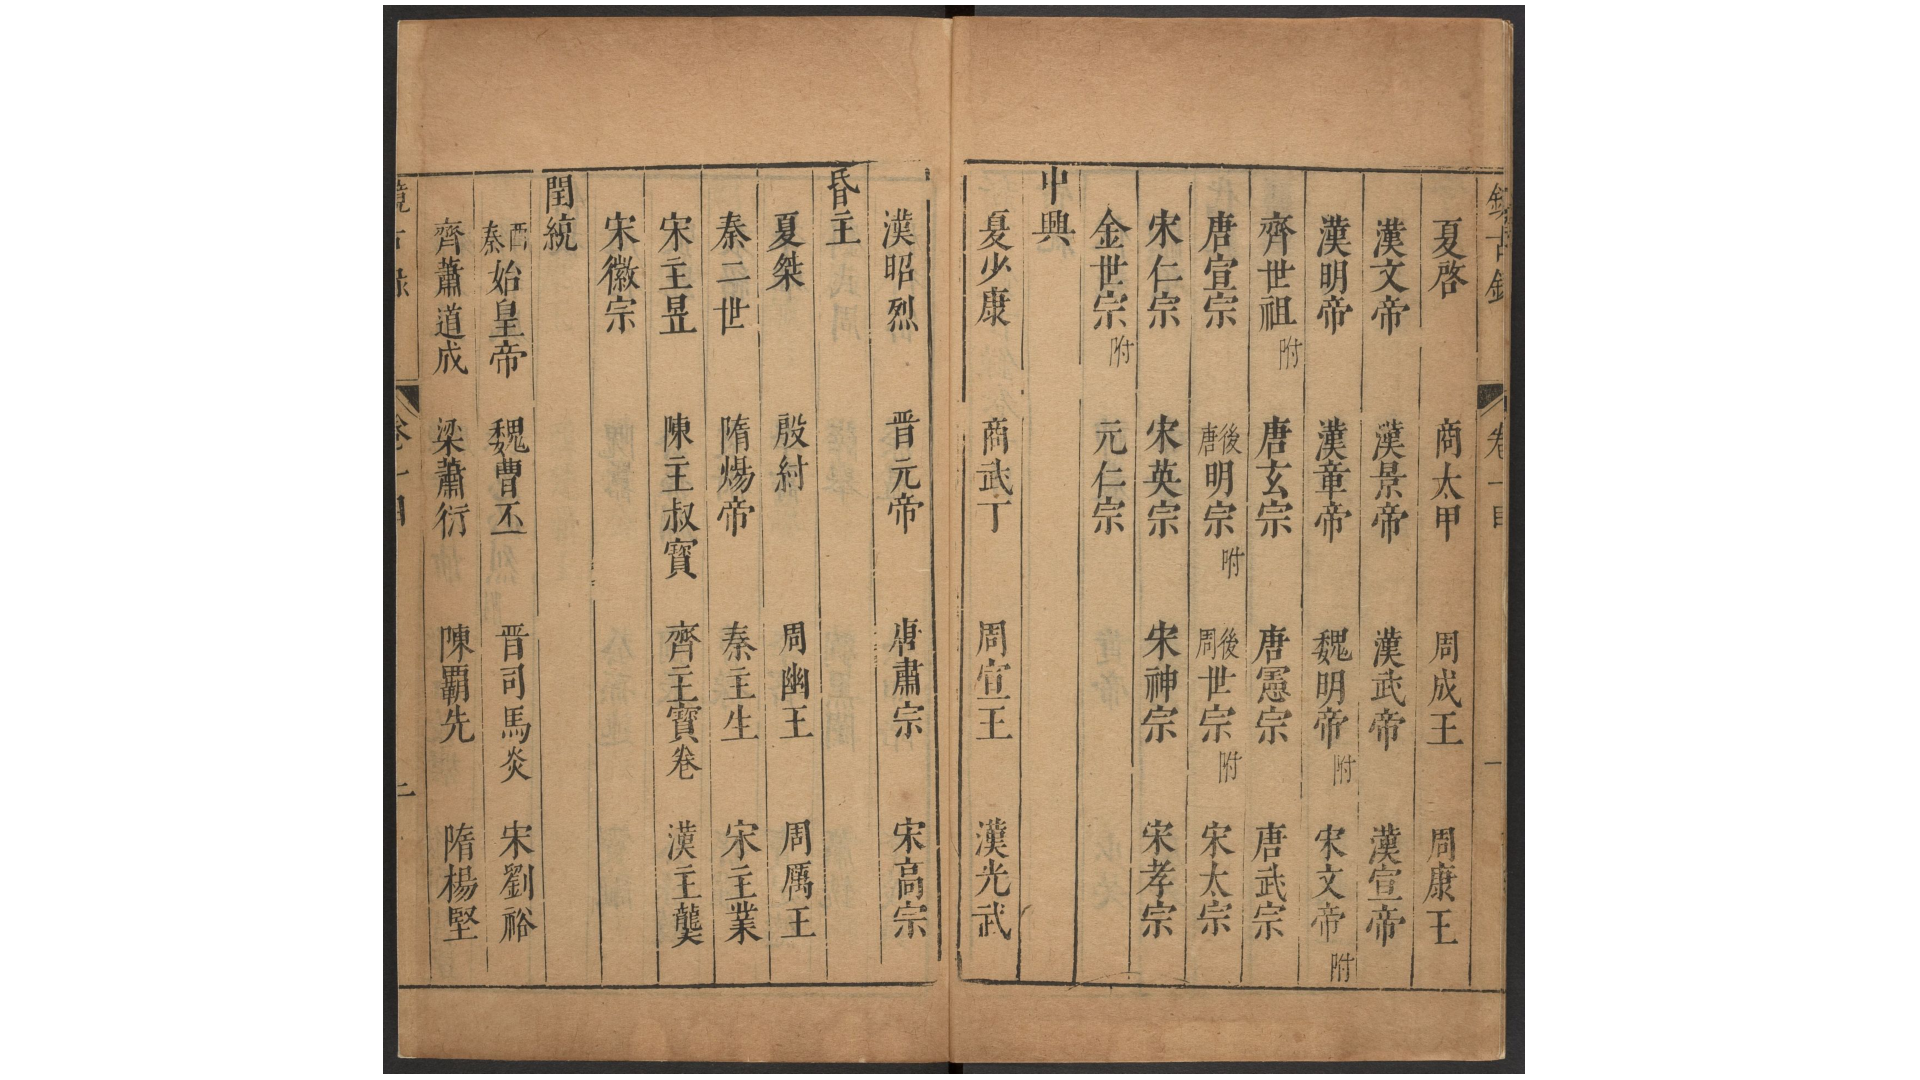 夏啓 商太甲 周成王 周康王
漢文帝 漢景帝 漢武帝 漢宣帝
漢明帝 漢章帝 魏明帝附 宋文帝附
齊世祖附 唐玄宗 唐憲宗 唐武宗
唐宣宗 後唐明宗附 後周世宗附 宋太宗
宋仁宗 宋英宗 宋神宗 宋孝宗
金世宗附 元仁宗
中興
夏少康 商武丁 周宣王 漢光武
漢昭烈 晋元帝 唐肅宗 宋高宗
昏主
夏桀 殷紂 周幽王 周厲王
秦二世 隋煬帝 秦主生 宋主業
宋主昱 陳主叔寳 齊主寳卷 漢主龑
宋徽宗
閏統
西秦始皇帝 魏曹丕 晋司馬炎 宋劉裕
齊蕭道成 梁蕭衍 陳覇先 隋楊堅
二